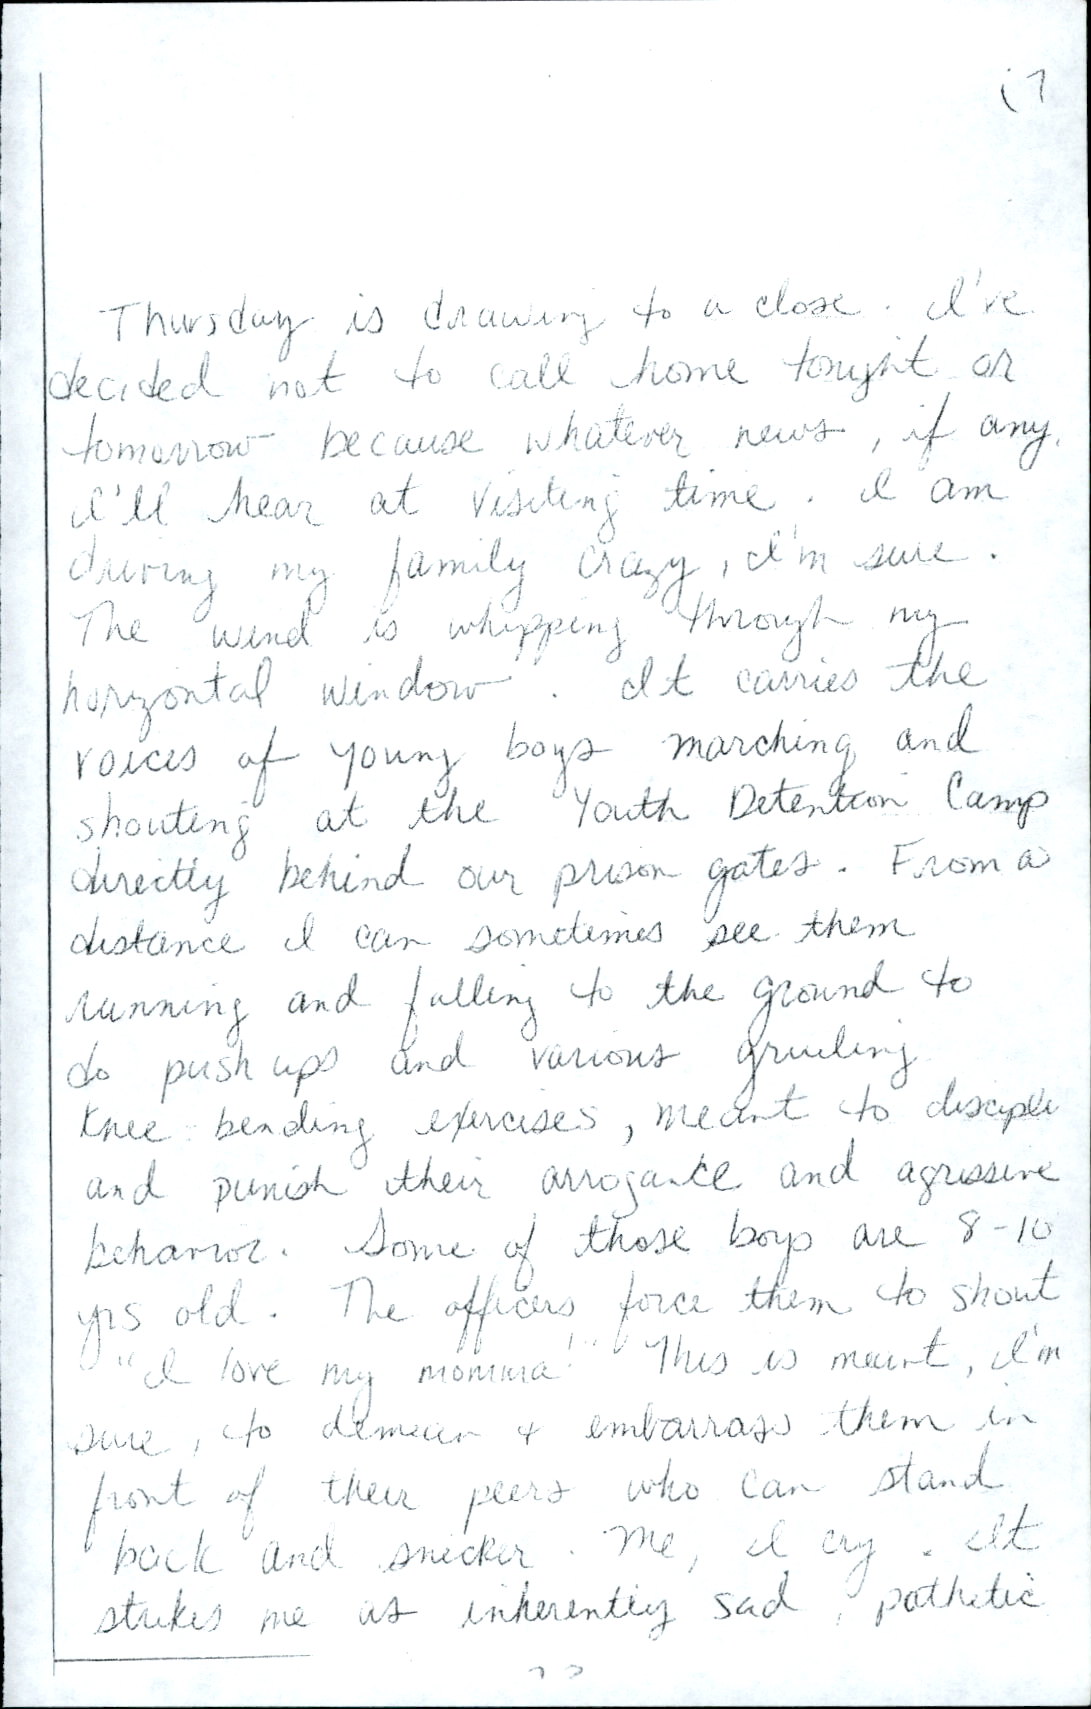 17
Thursday is drawing to a close. I've
decided not to call home tonight or
tomorrow because whatever news, if any,
I'll hear at visiting time. I am
driving my family crazy, I'm sure.
The wind is whipping through my
horizontal window. It carries the
voices of young boys marching and
shouting at the Youth Detention Camp
directly behind our prison gates. From a
distance I can sometimes see them
running and falling to the ground to
do push ups and various grueling
knee-bending exercises, meant to
and punish their arrogance and agressive
behavior. Some of those boys are 8-10
yrs old. The officers force them to shout
"I love my momma!" This is meant, I'm
sure, to demean + embarrass them in
front of their peers who can stand
back and snicker. Me, I cry. It
strikes me as inherently sad, pathetic